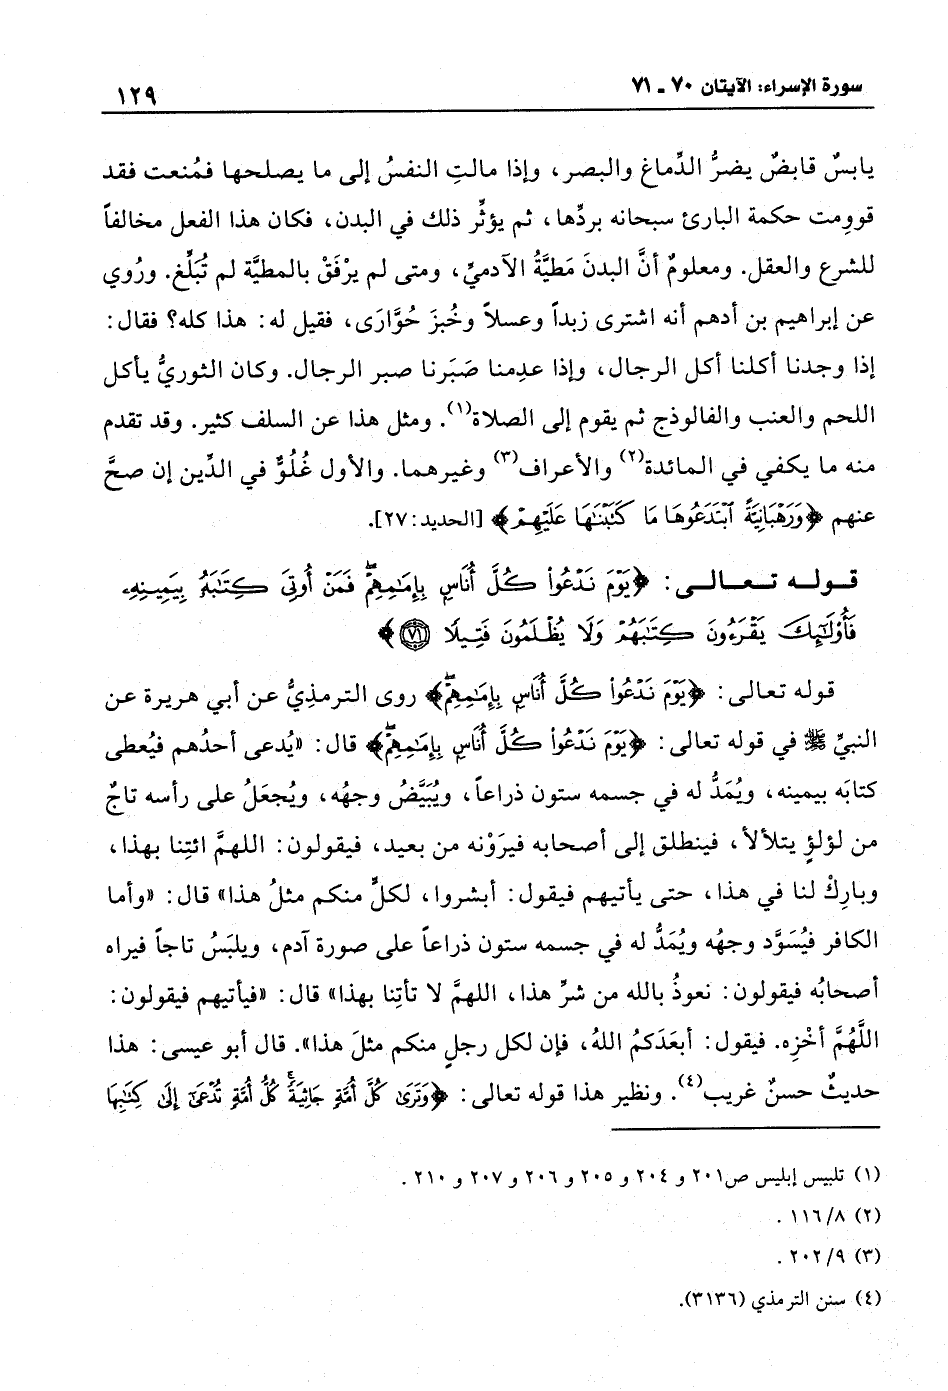 سورة الإسراء: الآيتان ٧٠ - ٧١
١٢٩
يابسٌ قابضٌ يضرُّ الدِّماغ والبصر، وإذا مالتِ النفسُ إلى ما يصلحها فمُنعت فقد
قوومت حكمة البارئ سبحانه بردِّها، ثم يؤثِّر ذلك في البدن، فكان هذا الفعل مخالفاً
للشرع والعقل. ومعلومٌ أنَّ البدنَ مَطيَّةُ الآدميِّ، ومتى لم يرْفَقْ بالمطيَّة لم تُبَلِّغ. ورُوي
عن إبراهيم بن أدهم أنه اشترى زبداً وعسلاً وخُبزَ حُوَّارَى، فقيل له: هذا كله؟ فقال:
إذا وجدنا أكلنا أكل الرجال، وإذا عدِمنا صَبَرنا صبر الرجال. وكان الثوريُّ يأكل
اللحم والعنب والفالوذج ثم يقوم إلى الصلاة(١). ومثل هذا عن السلف كثير. وقد تقدم
منه ما يكفي في المائدة(٢) والأعراف(٣) وغيرهما. والأول غُلُوٌّ في الدِّين إن صحَّ
عنهم ﴿وَرَهْبَانِيَّةً ٱبْتَدَعُوهَا مَا كَتَبْنَٰهَا عَلَيْهِمْ﴾ [الحديد: ٢٧].
قوله تعالى: ﴿يَوْمَ نَدْعُواْ كُلَّ أُنَاسٍۭ بِإِمَٰمِهِمْۖ فَمَنْ أُوتِىَ كِتَٰبَهُۥ بِيَمِينِهِۦ
فَأُوْلَٰٓئِكَ يَقْرَءُونَ كِتَٰبَهُمْ وَلَا يُظْلَمُونَ فَتِيلًا ٧١﴾
قوله تعالى: ﴿يَوْمَ نَدْعُواْ كُلَّ أُنَاسٍۭ بِإِمَٰمِهِمْۖ﴾ روى الترمذيُّ عن أبي هريرة عن
النبيِّ ﷺ في قوله تعالى: ﴿يَوْمَ نَدْعُواْ كُلَّ أُنَاسٍۭ بِإِمَٰمِهِمْۖ﴾ قال: «يُدعى أحدُهم فيُعطى
كتابَه بيمينه، ويُمَدُّ له في جسمه ستون ذراعاً، ويُبَيَّضُ وجهُه، ويُجعَلُ على رأسه تاجٌ
من لؤلؤٍ يتلألأ، فينطلق إلى أصحابه فيرَوْنه من بعيد، فيقولون: اللهمَّ ائتِنا بهذا،
وبارِكْ لنا في هذا، حتى يأتيهم فيقول: أبشروا، لكلٍّ منكم مثلُ هذا» قال: «وأما
الكافر فيُسَوَّد وجهُه ويُمَدُّ له في جسمه ستون ذراعاً على صورة آدم، ويلبَسُ تاجاً فيراه
أصحابُه فيقولون: نعوذُ بالله من شرِّ هذا، اللهمَّ لا تأتِنا بهذا» قال: «فيأتيهم فيقولون:
اللَّهُمَّ أخْزِه. فيقول: أبعَدَكمُ اللهُ، فإن لكل رجلٍ منكم مثلَ هذا». قال أبو عيسى: هذا
حديثٌ حسنٌ غريب(٤). ونظير هذا قوله تعالى: ﴿وَتَرَىٰ كُلَّ أُمَّةٍۢ جَاثِيَةًۚ كُلُّ أُمَّةٍۢ تُدْعَىٰٓ إِلَىٰ كِتَٰبِهَا
(١) تلبيس إبليس ص٢٠١ و ٢٠٤ و ٢٠٥ و ٢٠٦ و ٢٠٧ و ٢١٠ .
(٢) ١١٦/٨ .
(٣) ٢٠٢/٩ .
(٤) سنن الترمذي (٣١٣٦).